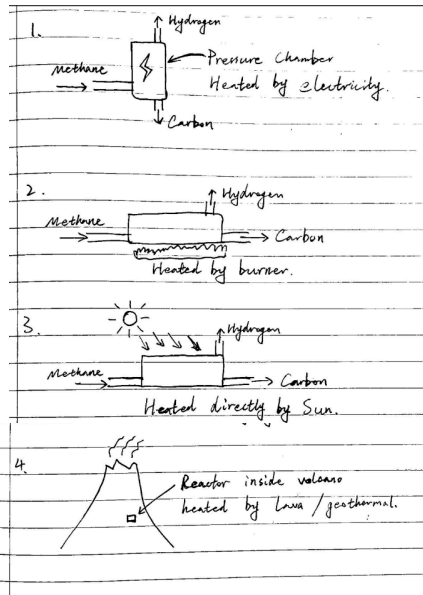 1.
Hydrogen
Methane
Pressure Chamber
Heated by electricity.
Carbon
2.
Hydrogen
Methane
Carbon
Heated by burner.
3.
Hydrogen
Methane
Carbon
Heated directly by Sun.
4.
Reactor inside volcano
heated by Lava / geothermal.